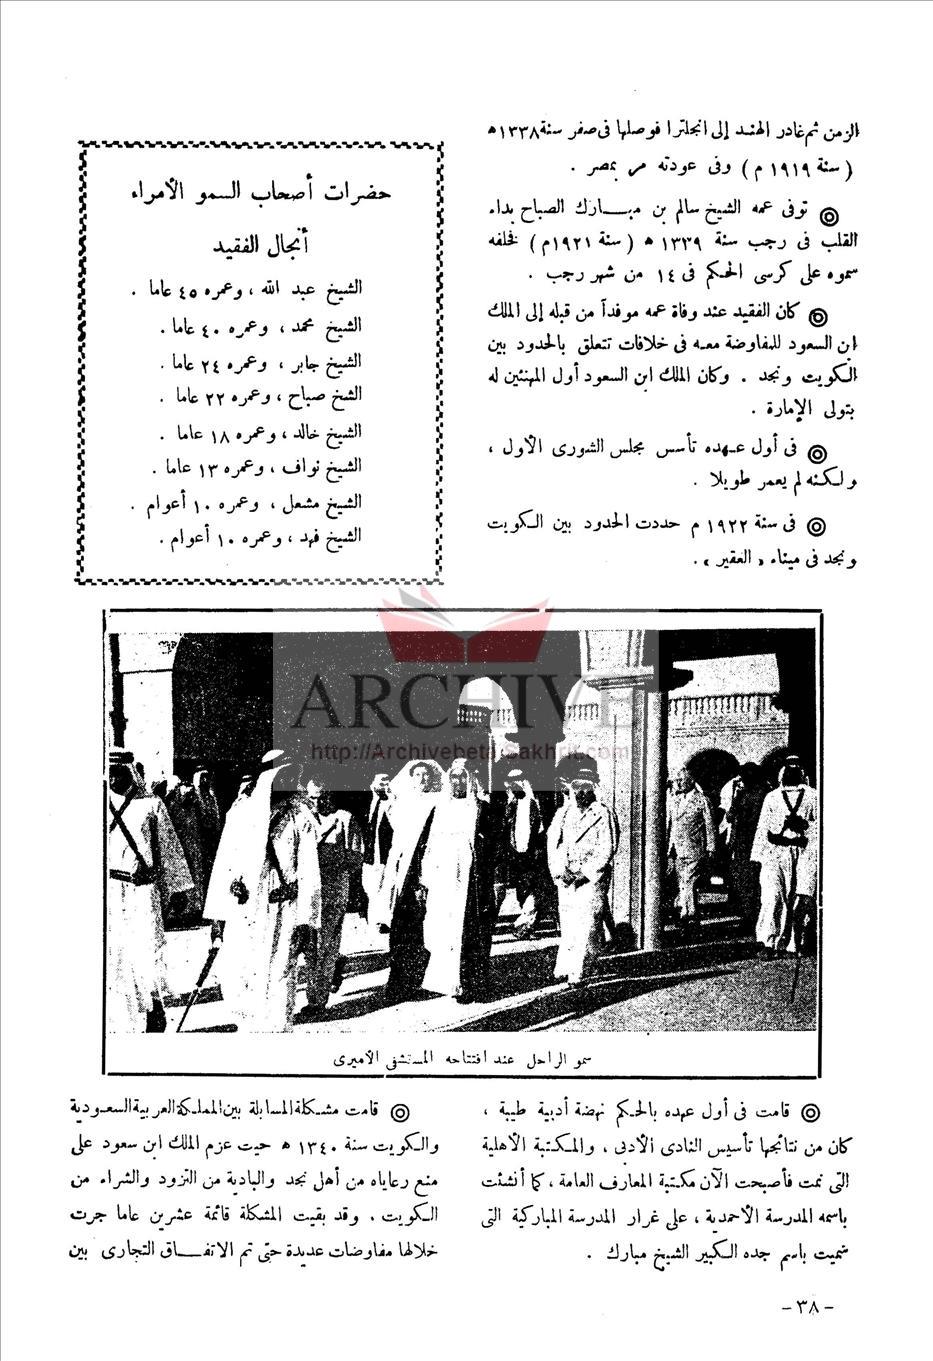 الزمن ثم غادر الهند إلى انجلترا فوصلها فى صفر سنة ١٣٣٨ه
( سنة ١٩١٩ م ) وفى عودته مر بمصر .
◎ توفى عمه الشيخ سالم بن مبارك الصباح بداء
القلب فى رجب سنة ١٣٣٩ ه ( سنة ١٩٢١م ) فخلفه
سموه على كرسى الحكم فى ١٤ من شهر رجب .
◎ كان الفقيد عند وفاة عمه موفداً من قبله إلى الملك
ابن السعود للمفاوضة معه فى خلافات تتعلق بالحدود بين
الكويت ونجد . وكان الملك ابن السعود أول المهنئين له
بتولى الإمارة .
◎ فى أول عهده تأسس مجلس الشورى الأول ،
ولكنه لم يعمر طويلا .
◎ فى سنة ١٩٢٢ م حددت الحدود بين الكويت
ونجد فى ميناء « العقير » .
حضرات أصحاب السمو الأمراء
أنجال الفقيد
الشيخ عبد الله ، وعمره ٤٥ عاما .
الشيخ محمد ، وعمره ٤٠ عاما .
الشيخ جابر ، وعمره ٢٤ عاما .
الشخ صباح ، وعمره ٢٢ عاما .
الشيخ خالد ، وعمره ١٨ عاما .
الشيخ نواف ، وعمره ١٣ عاما .
الشيخ مشعل ، وعمره ١٠ أعوام .
الشيخ فهد ، وعمره ١٠ أعوام .
ARCHIVE
http://Archivebeta.Sakhrit.com
سمو الراحل عند افتتاحه المستشفى الأميرى
◎ قامت فى أول عهده بالحكم نهضة أدبية طيبة ،
كان من نتائجها تأسيس النادى الأدبى ، والمكتبة الأهلية
التى نمت فأصبحت الآن مكتبة المعارف العامة ، كما أنشئت
باسمه المدرسة الأحمدية ، على غرار المدرسة المباركية التى
سميت باسم جده الكبير الشيخ مبارك .
◎ قامت مشكلة المسابلة بين المملكة العربية السعودية
والكويت سنة ١٣٤٠ ه حيت عزم الملك ابن سعود على
منع رعاياه من أهل نجد والبادية من التزود والشراء من
الكويت . وقد بقيت المشكلة قائمة عشرين عاما جرت
خلالها مفاوضات عديدة حتى تم الاتفاق التجارى بين
- ٣٨ -